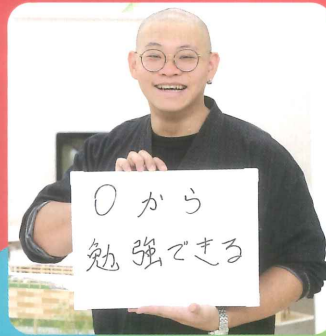 0から
勉強できる